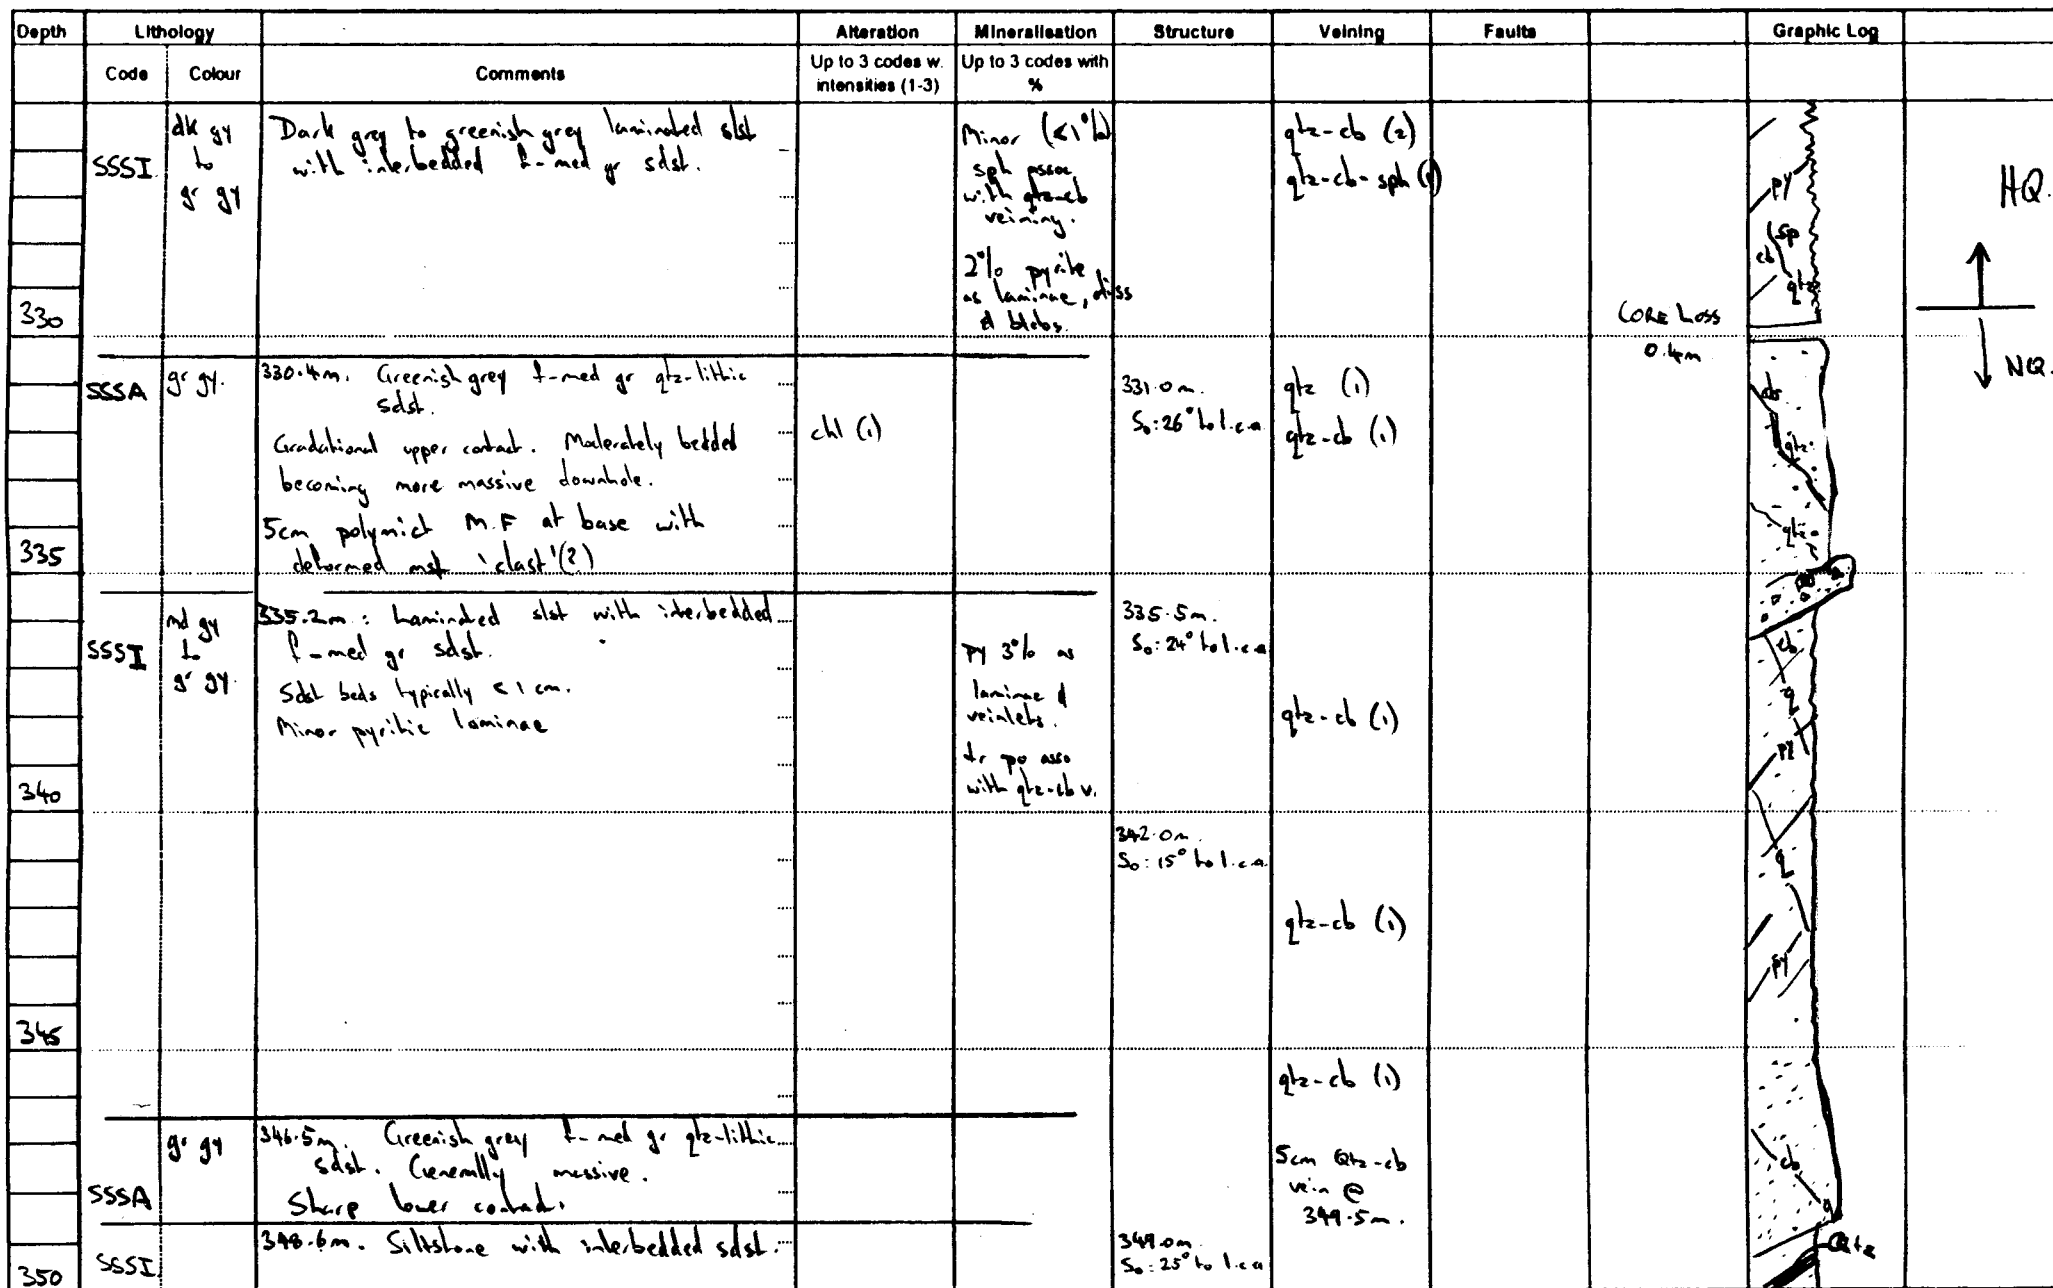 Depth Lithology Alteration Mineralisation Structure Veining Faults Graphic Log
Code Colour Comments Up to 3 codes w. intensities (1-3) Up to 3 codes with %
SSSI
dk gy
to
gr gy
Dark grey to greenish grey laminated slst
with interbedded f-med gr sdst.
Minor (<1%)
sph assoc
with qtz-cb
veining.
2% pyrite
as laminae, diss
& blobs.
qtz-cb (2)
qtz-cb-sph (1)
py
sp
cb
qtz
HQ.
330
CORE LOSS
0.4m
NQ.
SSSA
gr gy.
330.4m. Greenish grey f-med gr qtz-lithic
sdst.
Gradational upper contact. Moderately bedded
becoming more massive downhole.
5cm polymict M.F at base with
deformed mst 'clast'(?)
chl (1)
331.0m.
S₀: 26° to l.c.a
qtz (1)
qtz-cb (1)
cb
qtz
qtz
335
SSSI
md gy
to
gr gy.
335.2m: Laminated slst with interbedded
f-med gr sdst.
Sdst beds typically <1 cm.
Minor pyritic laminae
py 3% as
laminae &
veinlets.
tr po asso
with qtz-cb v.
335.5m.
S₀: 24° to l.c.a
qtz-cb (1)
cb
q
py
340
342.0m.
S₀: 15° to l.c.a
qtz-cb (1)
q
py
345
qtz-cb (1)
SSSA
gr gy
346.5m. Greenish grey f-med gr qtz-lithic
sdst. Generally massive.
Sharp lower contact.
5cm Qtz-cb
vein @
349.5m.
cb
q
SSSI
348.6m. Siltstone with interbedded sdst.
349.0m
S₀: 25° to l.c.a
Qtz
350